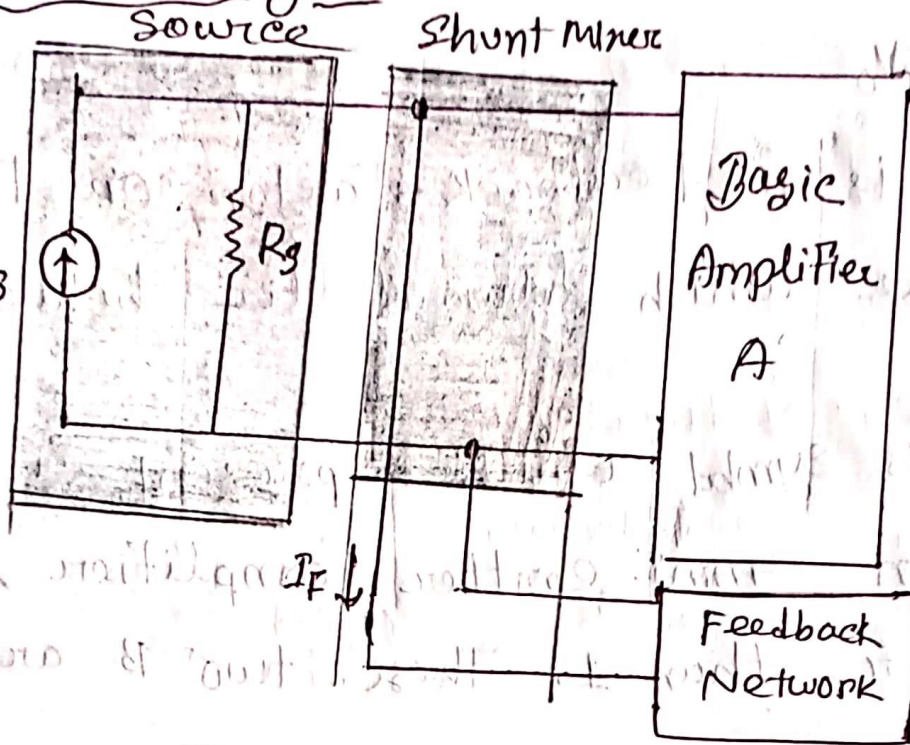 Source
Shunt Mixer
Rs
Basic
Amplifier
A
IF
Feedback
Network